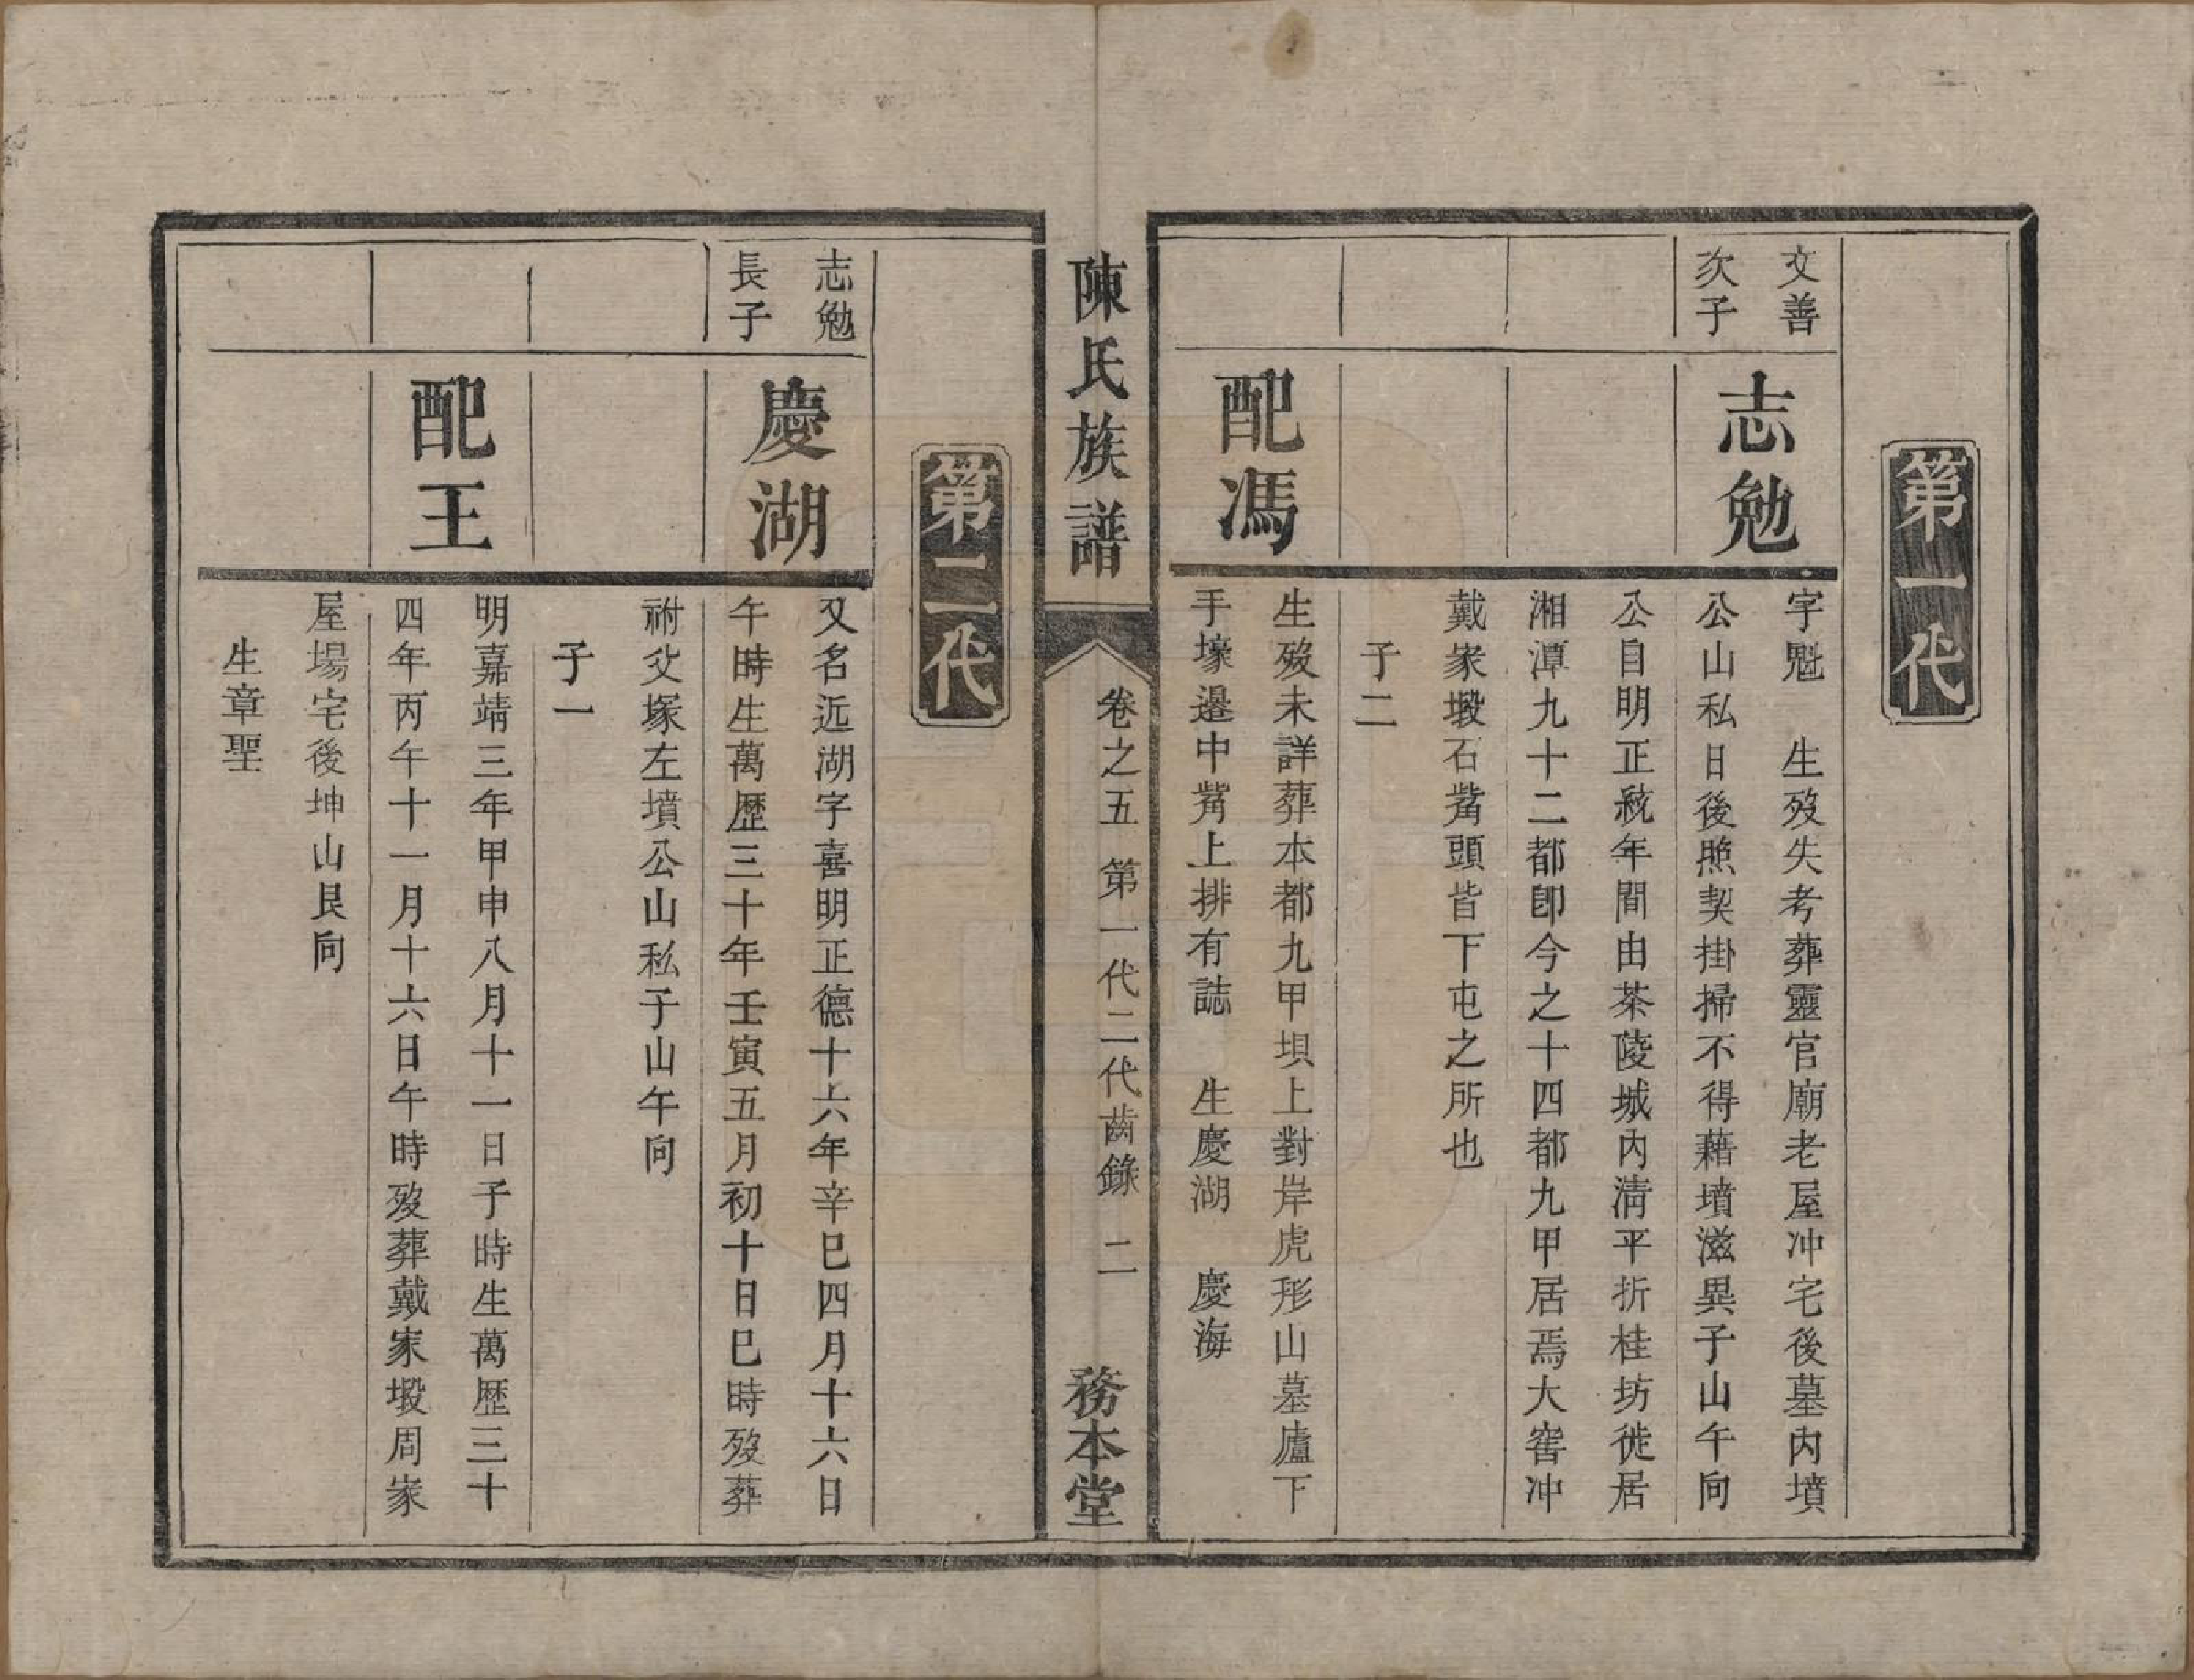 第一代
文善
次子
志勉
字魁　生歿失考葬靈官廟老屋冲宅後墓内墳
公山私日後照契掛掃不得藉墳滋異子山午向
公自明正統年間由茶陵城内清平折桂坊徙居
湘潭九十二都卽今之十四都九甲居焉大窖冲
戴家塅石觜頭皆下屯之所也
子二
配馮
生歿未詳葬本都九甲垻上對岸虎形山墓廬下
手壕邊中觜上排有誌　生慶湖　慶海
陳氏族譜
卷之五　第一代二代齒錄　二
務本堂
第二代
志勉
長子
慶湖
又名近湖字喜明正德十六年辛巳四月十六日
午時生萬歷三十年壬寅五月初十日巳時歿葬
祔父塚左墳公山私子山午向
子一
配王
明嘉靖三年甲申八月十一日子時生萬歷三十
四年丙午十一月十六日午時歿葬戴家塅周家
屋場宅後坤山艮向
生章聖